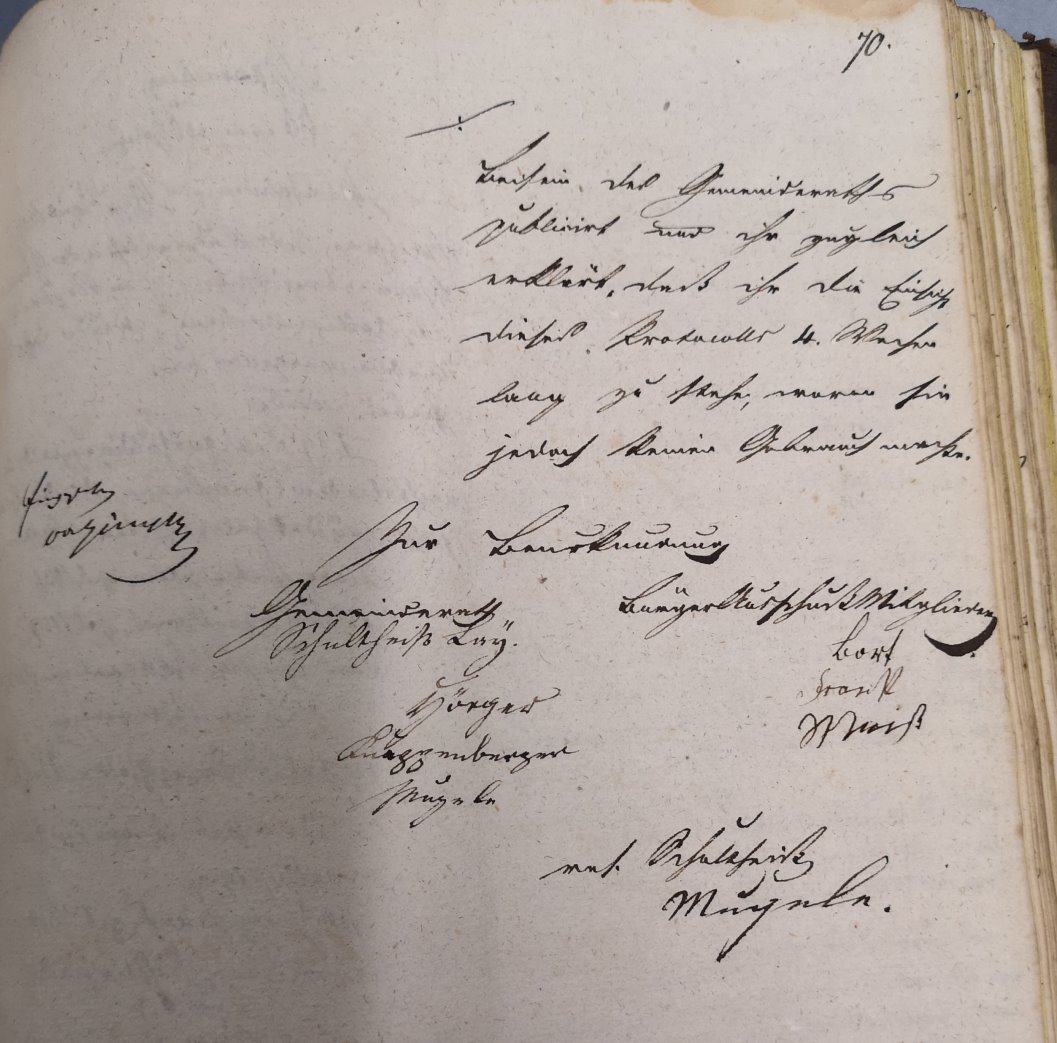 70.
Beisein des Gemeinderaths
publicirt und ihr zugleich
erklärt, daß ihr die Einsicht
dieses Protocolls 4. Wochen
lang zu stehe, wovon sie
jedoch keinen Gebrauch machte.
Zur Beurkundung
Gemeinderath
Schultheiß Lay.
Hörger
Knappenberger
Mugele
BürgerAusschuß Mitglieder
Bort
Frank
Weiß
vet. Schultheiß
Mugele.